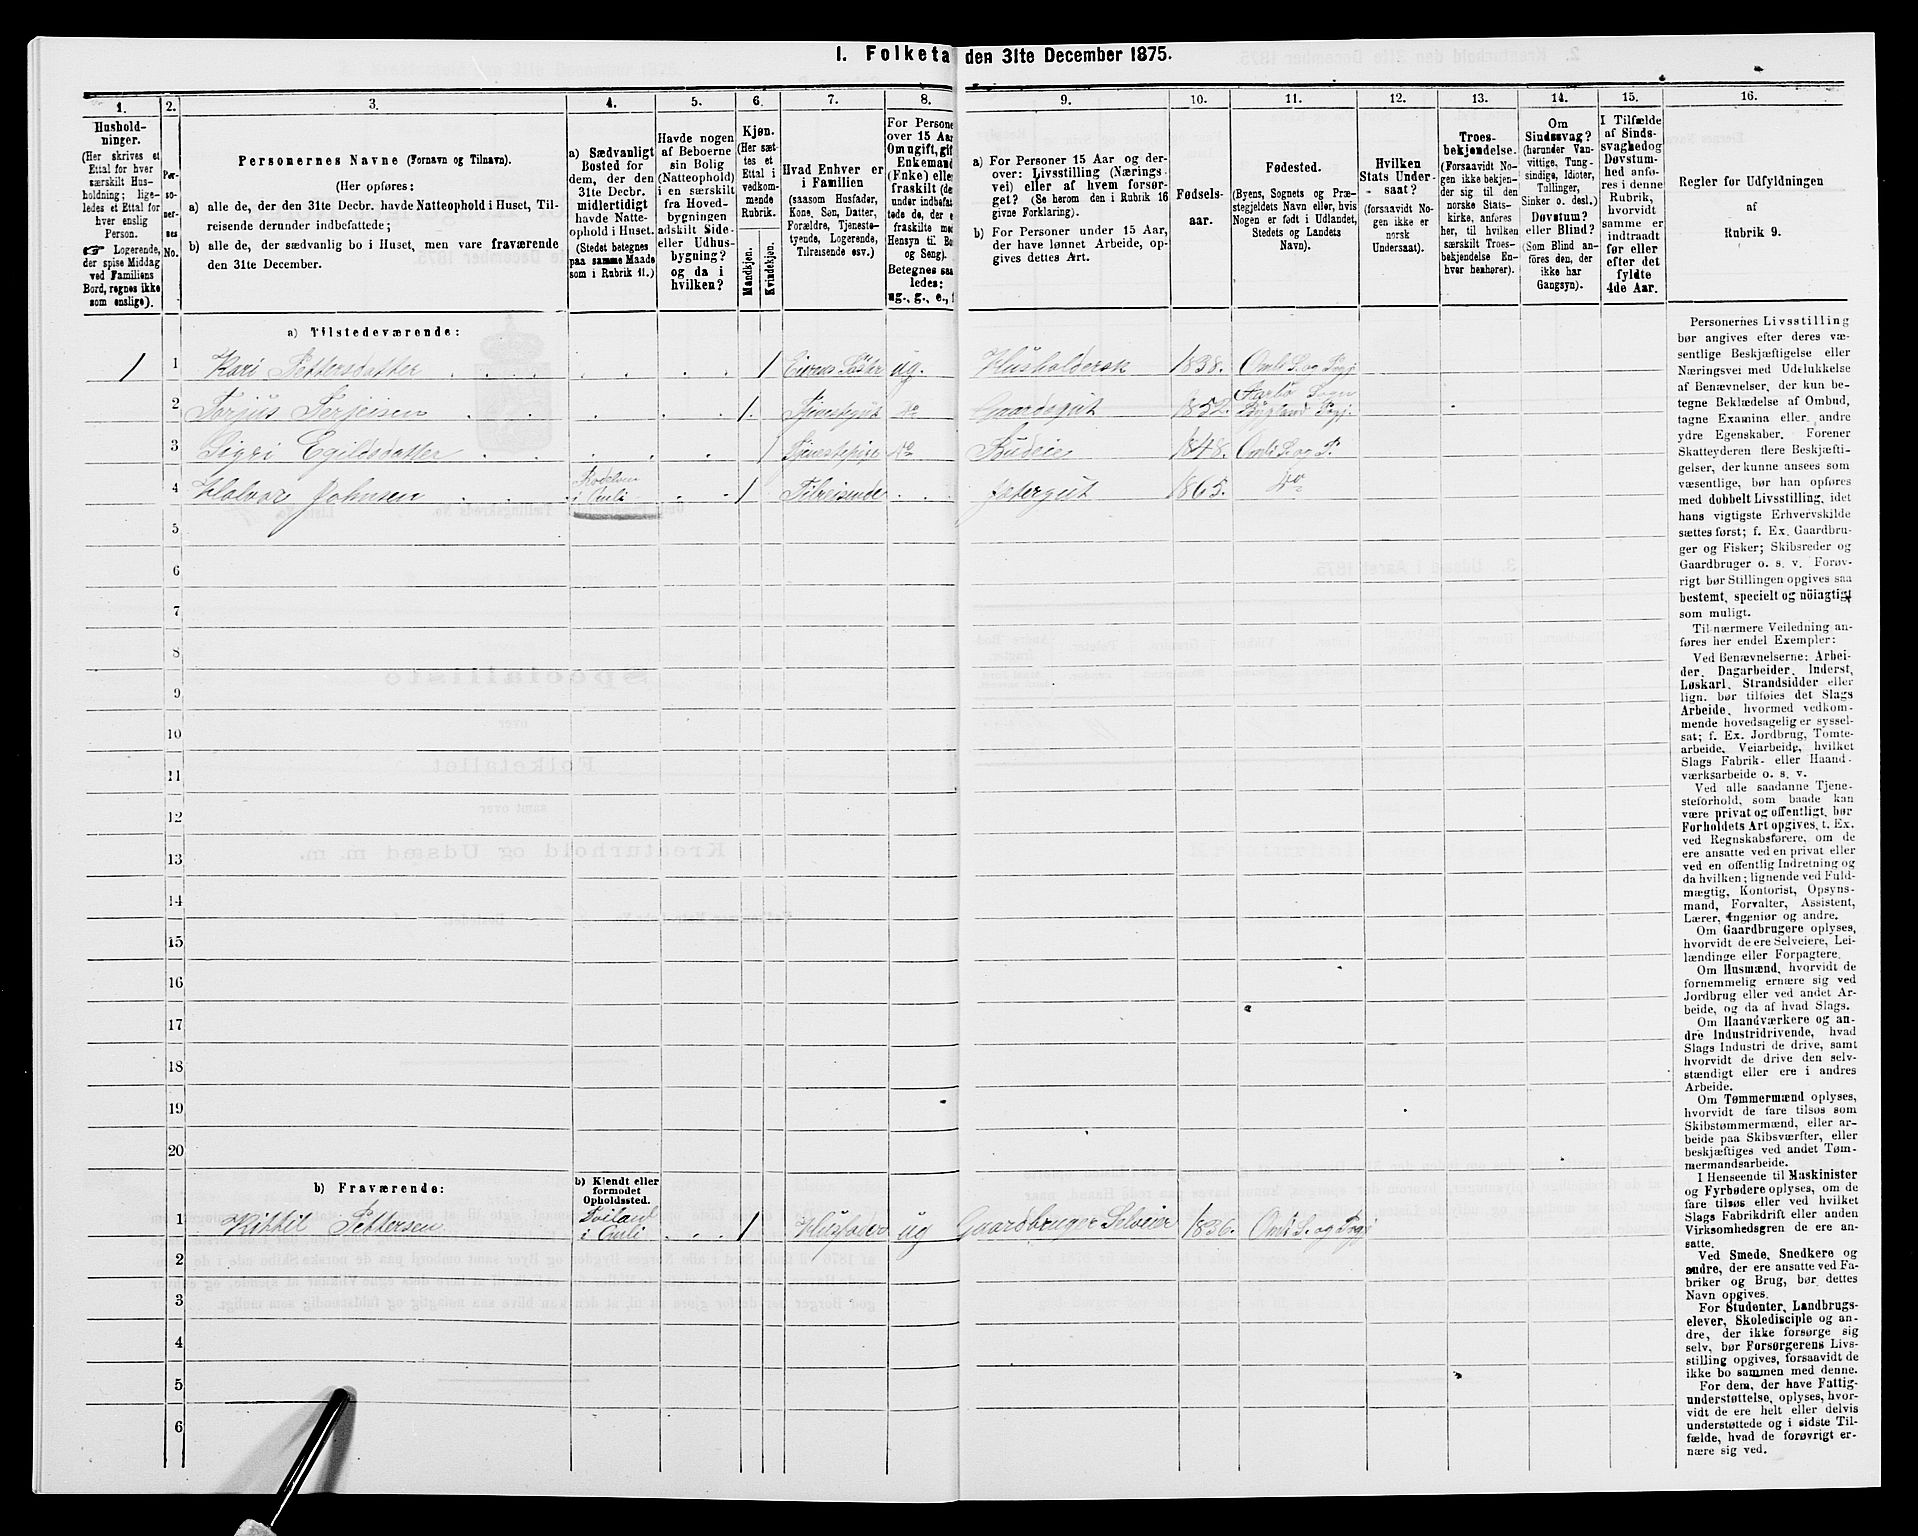 I. Folketa den 31te December 1875.
1. 2. 3. 4. 5. 6. 7. 8. 9. 10. 11. 12. 13. 14. 15. 16.
Hushold-
ninger.
(Her skrives et
Ettal for hver
særskilt Hus-
holdning; lige-
ledes et Ettal for
hver enslig
Person.
☞ Logerende,
der spise Middag
ved Familiens
Bord, regnes ikke
som enslige).
Per-
so-
ner-
nes
No.
Personernes Navne (Fornavn og Tilnavn).
(Her opføres:
a) alle de, der den 31te Decbr. havde Natteophold i Huset, Til-
reisende derunder indbefattede;
b) alle de, der sædvanlig bo i Huset, men vare fraværende
den 31te December.
a) Sædvanligt
Bosted for
dem, der den
31te Decbr.
midlertidigt
havde Natte-
ophold i Huset.
(Stedet betegnes
paa samme Maade
som i Rubrik 11.)
Havde nogen
af Beboerne
sin Bolig
(Natteophold)
i en særskilt
fra Hoved-
bygningen
adskilt Side-
eller Udhus-
bygning?
og da i
hvilken?
Kjøn.
(Her sæt-
tes et
Ettal i
vedkom-
mende
Rubrik.
Mandkjøn.
Kvindekjøn.
Hvad Enhver er
i Familien
(saasom Husfader,
Kone, Søn, Datter,
Forældre, Tjeneste-
tyende, Logerende,
Tilreisende osv.)
For Persone
over 15 Aar
Om ugift, gif
Enkemand
(Enke) elle
fraskilt (de
under indbefat
tede de, der e
fraskilte me
Hensyn til Bo
og Seng).
Betegnes saa
ledes:
ug., g., e., f
a) For Personer 15 Aar og der-
over: Livsstilling (Nærings-
vei) eller af hvem forsør-
get? (Se herom den i Rubrik 16
givne Forklaring).
b) For Personer under 15 Aar,
der have lønnet Arbeide, op-
gives dettes Art.
Fødsels-
aar.
Fødested.
(Byens, Sognets og Præ-
stegjeldets Navn eller, hvis
Nogen er født i Udlandet,
Stedets og Landets
Navn).
Hvilken
Stats Under-
saat?
(forsaavidt No-
gen ikke er
norsk
Undersaat).
Troes-
bekjendelse.
(Forsaavidt No-
gen ikke bekjen-
der sig til den
norske Stats-
kirke, anføres
her, til hvilken
særskilt Troes-
bekjendelse En-
hver henhører).
Om
Sindssvag?
(herunder Van-
vittige, Tung-
sindige, Idioter,
Tullinger,
Sinker o. desl.)
Døvstum?
eller Blind?
(Som Blind an-
føres den, der
ikke har
Gangsyn).
I Tilfælde
af Sinds-
svaghed og
Døvstum-
hed anfø-
res i denne
Rubrik,
hvorvidt
samme er
indtraadt
før eller
efter det
fyldte
4de Aar.
Regler for Udfyldningen
af
Rubrik 9.
a) Tilstedeværende:
1 1 Kari Pettersdatter 1 Eierens Søster ug. Husholdersk 1838. Omli S. og Pgj
2 Torjus Terjeisen 1. Tjenestegut do Gaardsgut 1852. Sogn Bygland Pgj.
3 Sigri Egildsdatter 1 do Budeie 1848. Omli S. og P.
4 Halvor Johnsen i Omli 1 Tilreisende Jætergut 1865. do
5
6
7
8
9
10
11
12
13
14
15
16
17
18
19
20
b) Fraværende:
b) Kjendt eller
formodet
Opholdssted.
1 Kittil Pettersen i Omli 1 Husfader ug Gaardbruger Selveier 1836. Omli S. og Pgj
2
3
4
5
6
Personernes Livsstilling
bør angives efter deres væ-
sentlige Beskjæftigelse eller
Næringsvei med Udelukkelse
af Benævnelser, der kun be-
tegne Beklædelse af Ombud,
tagne Examina eller andre
ydre Egenskaber. Forener
Skatteyderen flere Beskjæfti-
gelser, der kunne ansees som
væsentlige, bør han opføres
med dobbelt Livsstilling, idet
hans vigtigste Erhvervskilde
sættes først; f. Ex. Gaardbru-
ger og Fisker; Skibsreder og
Gaardbruger o. s. v. Forøv-
rigt bør Stillingen opgives saa
bestemt, specielt og nöiagtigt
som muligt.
Til nærmere Veiledning an-
føres her endel Exempler:
Ved Benævnelserne: Arbei-
der, Dagarbeider, Inderst,
Løskarl, Strandsidder eller
lign. bør tilføies det Slags
Arbeide, hvormed vedkom-
mende hovedsagelig er syssel-
sat; f. Ex. Jordbrug, Tomte-
arbeide, Veiarbeide, hvilket
Slags Fabrik- eller Haand-
værksarbeide o. s. v.
Ved alle saadanne Tjene-
steforhold, som baade kan
være privat og offentligt, bør
Forholdets Art opgives, t. Ex.
ved Regnskabsførere, om de
ere ansatte ved en privat eller
ved en offentlig Indretning og
da hvilken; lignende ved Fuld-
mægtig, Kontorist, Opsyns-
mand, Forvalter, Assistent,
Lærer, Ingeniør og andre.
Om Gaardbrugere oplyses,
hvorvidt de ere Selveiere, Lei-
lændinge eller Forpagtere.
Om Husmænd, hvorvidt de
fornemmelig ernære sig ved
Jordbrug eller ved andet Ar-
beide, og da af hvad Slags.
Om Haandværkere og an-
dre Industridrivende, hvad
Slags Industri de drive, samt
hvorvidt de drive den selv-
stændigt eller ere i andres
Arbeide.
Om Tømmermænd oplyses,
hvorvidt de fare tilsøs som
Skibstømmermænd, eller ar-
beide paa Skibsværfter, eller
beskjæftiges ved andet Tøm-
mermandsarbeide.
I Henseende til Maskinister
og Fyrbødere oplyses, om de
fare tilsøs eller ved hvilket
Slags Fabrikdrift eller anden
Virksomhedsgren de ere an-
satte.
Ved Smede, Snedkere og
andre, der ere ansatte ved Fa-
briker og Brug, bør dettes
Navn opgives.
For Studenter, Landbrugs-
elever, Skoledisciple og an-
dre, der ikke forsørge sig
selv, bør Forsørgerens Livs-
stilling opgives, forsaavidt de
ikke bo sammen med denne.
For dem, der have Fattig-
understøttelse, oplyses, hvor-
vidt de ere helt eller delvis
understøttede og i sidste Til-
fælde, hvad de forøvrigt er-
nære sig ved.